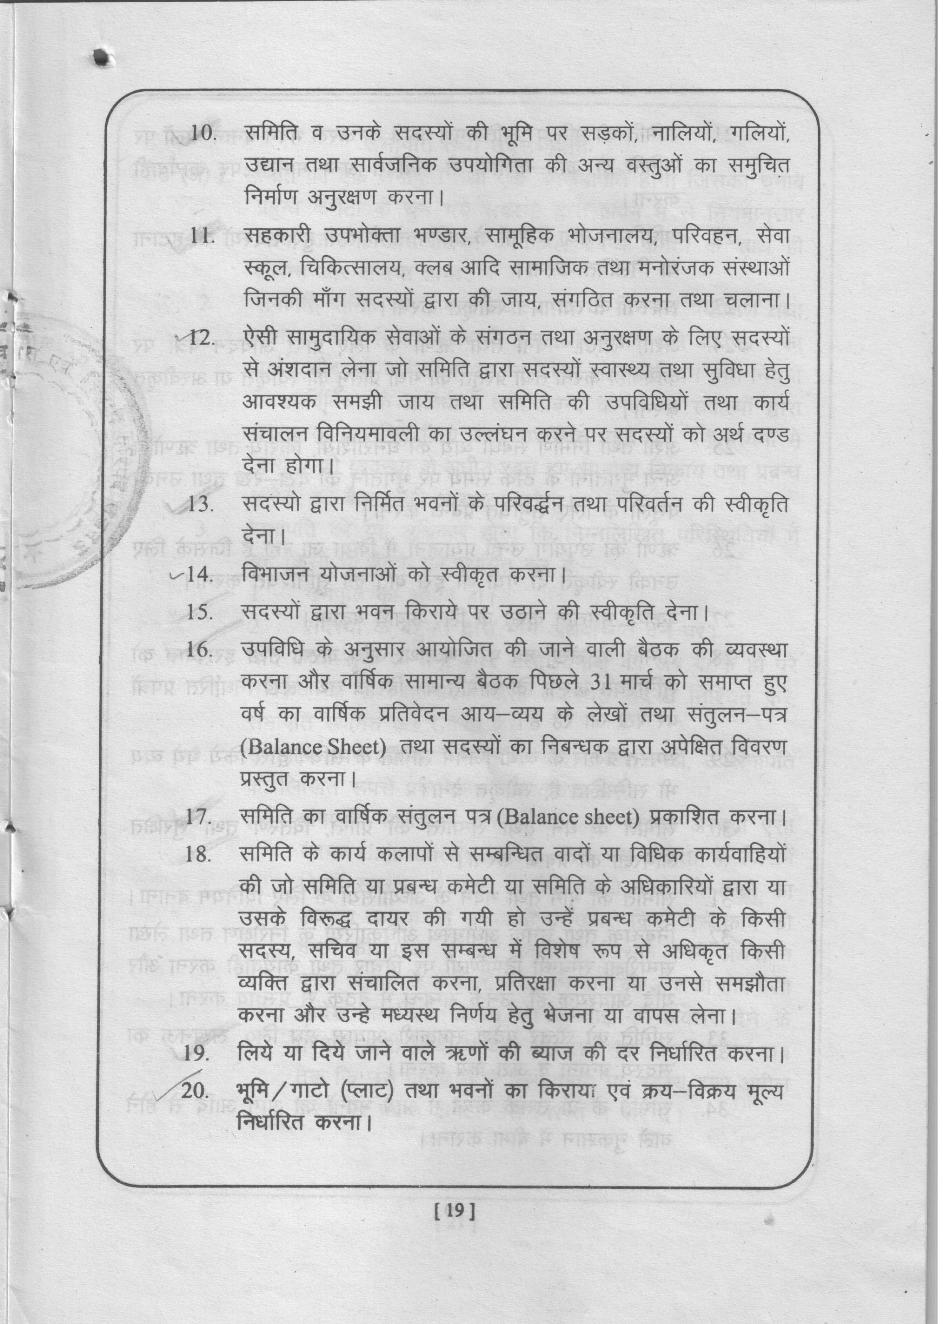 10. समिति व उनके सदस्यों की भूमि पर सड़कों, नालियों, गलियों,
उद्यान तथा सार्वजनिक उपयोगिता की अन्य वस्तुओं का समुचित
निर्माण अनुरक्षण करना।
11. सहकारी उपभोक्ता भण्डार, सामूहिक भोजनालय, परिवहन, सेवा
स्कूल, चिकित्सालय, क्लब आदि सामाजिक तथा मनोरंजक संस्थाओं
जिनकी माँग सदस्यों द्वारा की जाय, संगठित करना तथा चलाना।
12. ऐसी सामुदायिक सेवाओं के संगठन तथा अनुरक्षण के लिए सदस्यों
से अंशदान लेना जो समिति द्वारा सदस्यों स्वास्थ्य तथा सुविधा हेतु
आवश्यक समझी जाय तथा समिति की उपविधियों तथा कार्य
संचालन विनियमावली का उल्लंघन करने पर सदस्यों को अर्थ दण्ड
देना होगा।
13. सदस्यो द्वारा निर्मित भवनों के परिवर्द्धन तथा परिवर्तन की स्वीकृति
देना।
14. विभाजन योजनाओं को स्वीकृत करना।
15. सदस्यों द्वारा भवन किराये पर उठाने की स्वीकृति देना।
16. उपविधि के अनुसार आयोजित की जाने वाली बैठक की व्यवस्था
करना और वार्षिक सामान्य बैठक पिछले 31 मार्च को समाप्त हुए
वर्ष का वार्षिक प्रतिवेदन आय–व्यय के लेखों तथा संतुलन–पत्र
(Balance Sheet) तथा सदस्यों का निबन्धक द्वारा अपेक्षित विवरण
प्रस्तुत करना।
17. समिति का वार्षिक संतुलन पत्र (Balance sheet) प्रकाशित करना।
18. समिति के कार्य कलापों से सम्बन्धित वादों या विधिक कार्यवाहियों
की जो समिति या प्रबन्ध कमेटी या समिति के अधिकारियों द्वारा या
उसके विरूद्ध दायर की गयी हो उन्हें प्रबन्ध कमेटी के किसी
सदस्य, सचिव या इस सम्बन्ध में विशेष रूप से अधिकृत किसी
व्यक्ति द्वारा संचालित करना, प्रतिरक्षा करना या उनसे समझौता
करना और उन्हे मध्यस्थ निर्णय हेतु भेजना या वापस लेना।
19. लिये या दिये जाने वाले ऋणों की ब्याज की दर निर्धारित करना।
20. भूमि/गाटो (प्लाट) तथा भवनों का किराया एवं क्रय–विक्रय मूल्य
निर्धारित करना।
[ 19 ]